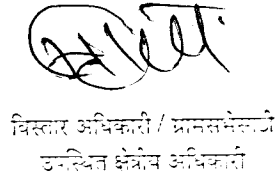 विस्तार अधिकारी / ग्रामसभेसाठी
उपस्थित क्षेत्रीय अधिकारी